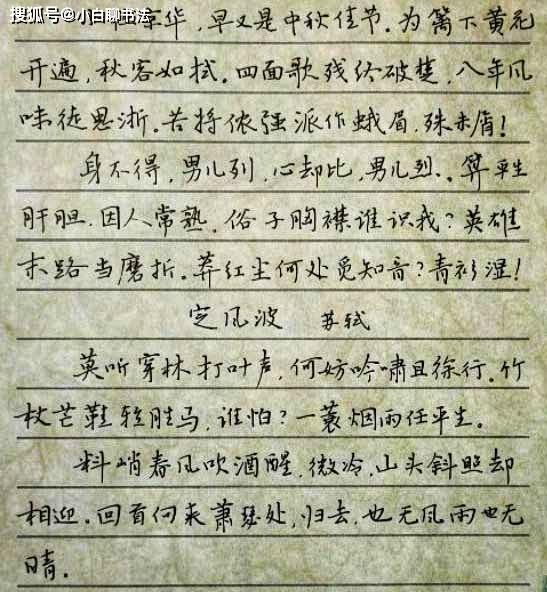 搜狐号@小白聊书法
小住京华，早又是中秋佳节。为篱下黄花
开遍，秋容如拭。四面歌残终破楚，八年风
味徒思浙。苦将侬强派作蛾眉，殊未屑！
身不得，男儿列，心却比，男儿烈。算平生
肝胆，因人常熟。俗子胸襟谁识我？英雄
末路当磨折。莽红尘何处觅知音？青衫湿！
定风波 苏轼
莫听穿林打叶声，何妨吟啸且徐行。竹
杖芒鞋轻胜马，谁怕？一蓑烟雨任平生。
料峭春风吹酒醒，微冷，山头斜照却
相迎。回首向来萧瑟处，归去，也无风雨也无
晴。